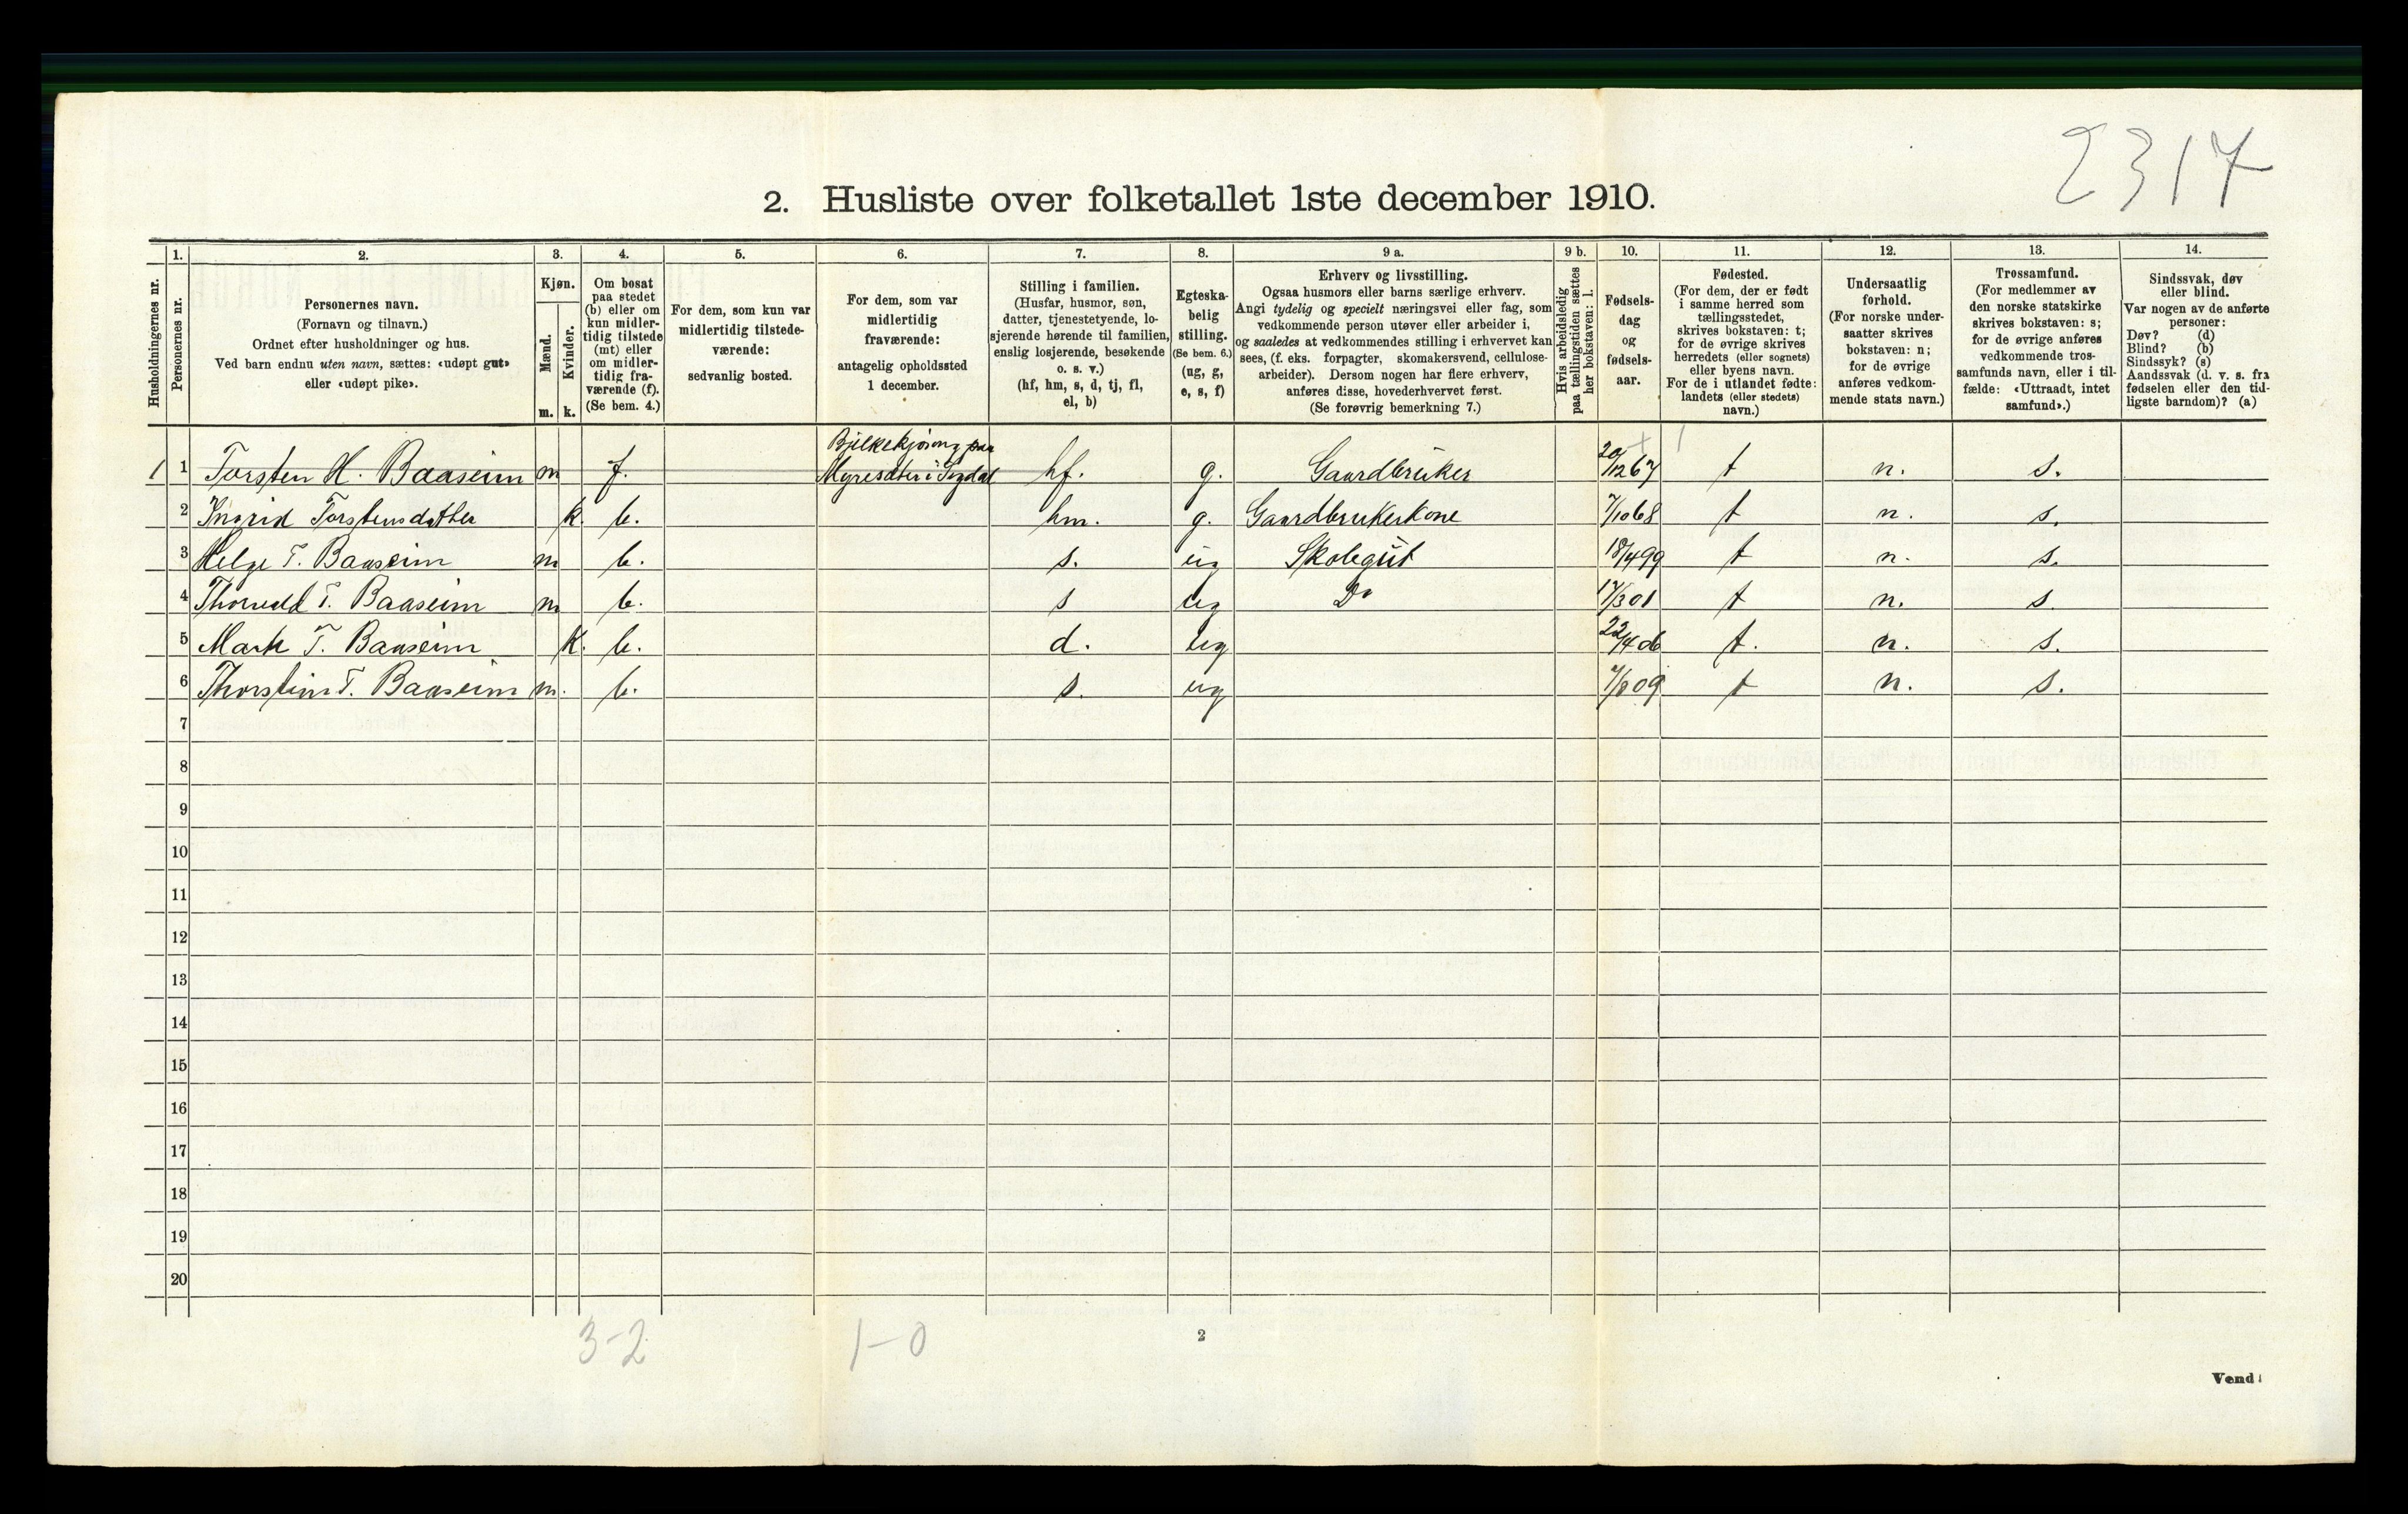 2317
2. Husliste over folketallet 1ste december 1910.
1. 2. 3. 4. 5. 6. 7. 8. 9 a. 9 b. 10. 11. 12. 13. 14.
Husholdningernes nr.
Personernes nr.
Personernes navn.
(Fornavn og tilnavn.)
Ordnet efter husholdninger og hus.
Ved barn endnu uten navn, sættes: «udøpt gut»
eller «udøpt pike».
Kjøn.
Mænd.
Kvinder.
m. k.
Om bosat
paa stedet
(b) eller om
kun midler-
tidig tilstede
(mt) eller
om midler-
tidig fra-
værende (f).
(Se bem. 4.)
For dem, som kun var
midlertidig tilstede-
værende:
sedvanlig bosted.
For dem, som var
midlertidig
fraværende:
antagelig opholdssted
1 december.
Stilling i familien.
(Husfar, husmor, søn,
datter, tjenestetyende, lo-
sjerende hørende til familien,
enslig losjerende, besøkende
o. s. v.)
(hf, hm, s, d, tj, fl,
el, b)
Egteska-
belig
stilling.
(Se bem. 6.)
(ug, g,
e, s, f)
Erhverv og livsstilling.
Ogsaa husmors eller barns særlige erhverv.
Angi tydelig og specielt næringsvei eller fag, som
vedkommende person utøver eller arbeider i,
og saaledes at vedkommendes stilling i erhvervet kan
sees, (f. eks. forpagter, skomakersvend, cellulose-
arbeider). Dersom nogen har flere erhverv,
anføres disse, hovederhvervet først.
(Se forøvrig bemerkning 7.)
Hvis arbeidsledig
paa tællingstiden sættes
her bokstaven: l.
Fødsels-
dag
og
fødsels-
aar.
Fødested.
(For dem, der er født
i samme herred som
tællingsstedet,
skrives bokstaven: t;
for de øvrige skrives
herredets (eller sognets)
eller byens navn.
For de i utlandet fødte:
landets (eller stedets)
navn.)
Undersaatlig
forhold.
(For norske under-
saatter skrives
bokstaven: n;
for de øvrige
anføres vedkom-
mende stats navn.)
Trossamfund.
(For medlemmer av
den norske statskirke
skrives bokstaven: s;
for de øvrige anføres
vedkommende tros-
samfunds navn, eller i til-
fælde: «Uttraadt, intet
samfund».)
Sindssvak, døv
eller blind.
Var nogen av de anførte
personer:
Døv? (d)
Blind? (b)
Sindssyk? (s)
Aandssvak (d. v. s. fra
fødselen eller den tid-
ligste barndom)? (a)
Bjelkekjøring paa
1 1 Torsten H. Baaseim m f. Myresæter i Sigdal hf. g. Gaardbruker 20/12 67 t n. s.
2 Ingrid Torstensdatter k. b. hm. g. Gaardbrukerkone 7/10 68 t n. s.
3 Helge T. Baaseim m b. s. ug Skolegut 18/4 99 t n. s.
4 Thorvald T. Baaseim m b. s ug Do 17/3 01 t n. s.
5 Marte T. Baaseim k. b. d. ug 22/4 06 t. n. s.
6 Thorstein T. Baaseim m. b. s. ug 7/8 09 t n. s.
7
8
9
10
11
12
13
14
15
16
17
18
19
20
3-2 1-0
2
Vend!